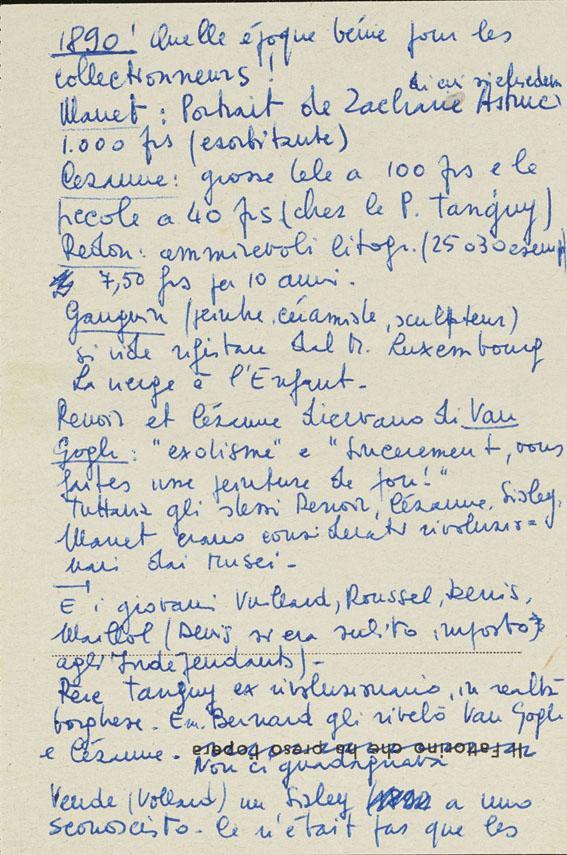 1890! Quelle époque bénie pour les
collectionneurs!
di cui
Manet: Portrait de Zacharie Astruc
1.000 frs (esorbitante)
Cézanne: grosse tele a 100 frs e le
piccole a 40 frs (chez le P. Tanguy)
Redon: ammirevoli litogr. (25 o 30 esempl
7,50 frs per 10 anni.
Gauguin (peintre, céramiste, sculpteur)
si vide rifiutare dal M. Luxembourg
La vierge à l'Enfant-
Renoir et Cézanne dicevano di Van
Gogh: "exotisme" e "Sincerement, vous
faites une peinture de fou!"
Tuttavia gli stessi Renoir, Cézanne, Sisley,
Manet erano considerati rivoluzio=
nari dai Musei-
E i giovani Vuillard, Roussel, Denis,
Maillol (Denis si era subito imposto
agli Indépendants)-
Père Tanguy ex rivoluzionario, in realtà
borghese. Em. Bernard gli rivelò Van Gogh
e Cézanne.
Il Fattorino che ha preso l'opera
Non ci guadagnava
Vende (Vollard) un Sisley a uno
sconosciuto. Ce n'était pas que les